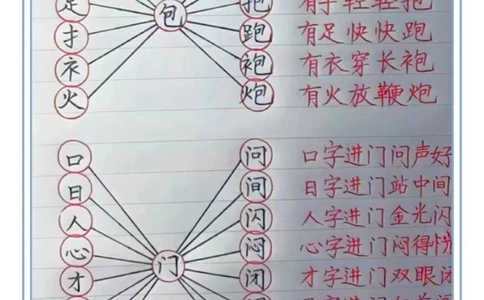 足 包 抱 有手轻轻抱
扌 跑 有足快快跑
衤 袍 有衣穿长袍
火 炮 有火放鞭炮
口 问 口字进门问声好
日 间 日字进门站中间
人 闪 人字进门金光闪
心 闷 心字进门闷得慌
才 门 闭 才字进门双眼闭